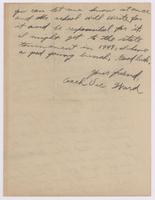 you can let me know at once
and the school will write for
it and be responsible for it.
I might get to the state
tournament in 1949, I have
a good young bunch, Good Luck,
Your friend
Coach Ward